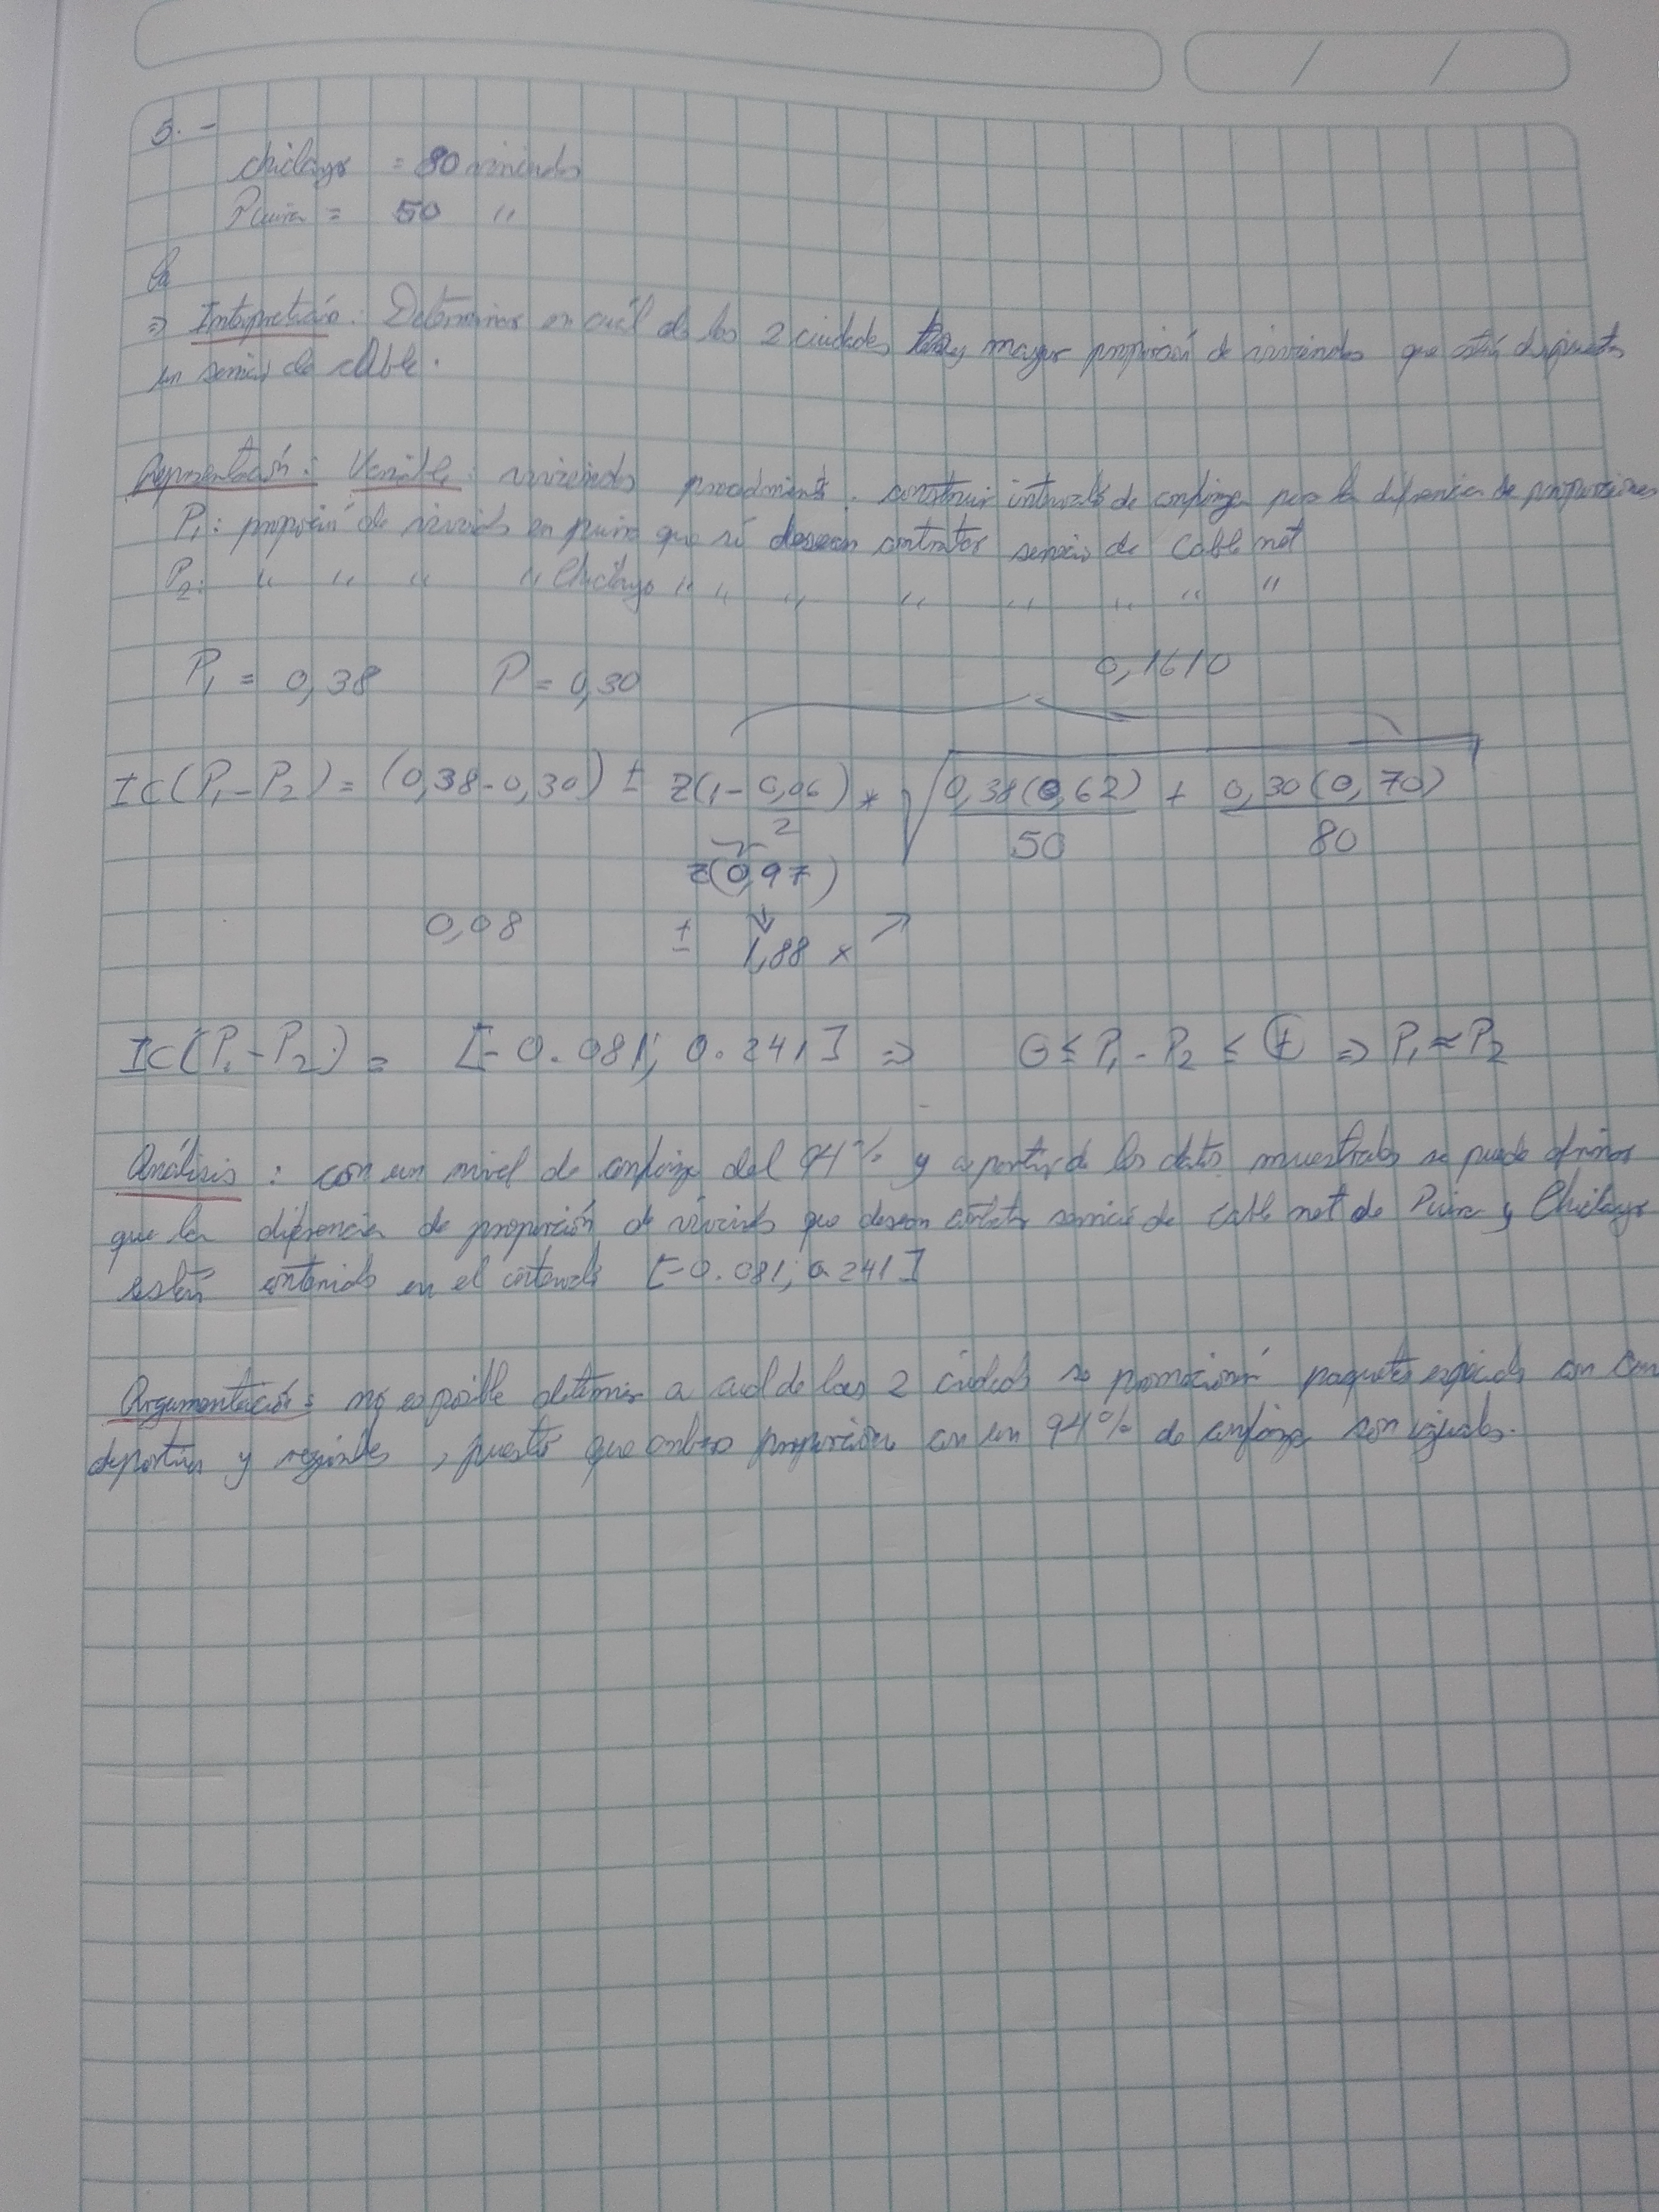 5. -
chiclayo = 80 viviendas
Piura = 50 "
la
⇒ Interpretación: Determinar en cuál de las 2 ciudades hay mayor proporción de viviendas que están dispuestas
un servicio de cable.
Representación: Variable: viviendas procedimiento. construir intervalo de confianza para la diferencia de proporciones
P1: proporción de viviendas en piura que si desean contratar servicio de Cable net
P2: " " " " Chiclayo " " " " " " " "
P1 = 0,38 P = 0,30 0,1610
IC(P1-P2) = (0,38-0,30) ± Z(1-0,06/2) * √(0,38(0,62)/50 + 0,30(0,70)/80)
Z(0,97)
0,08 ± 1,88 x
IC(P1-P2) = [-0.081; 0.241] ⇒ ⊖ ≤ P1-P2 ≤ ⊕ ⇒ P1 ≈ P2
Análisis: con un nivel de confianza del 94% y a partir de los datos muestrales se puede afirmar
que la diferencia de proporción de viviendas que desean contratar servicio de cable net de Piura y Chiclayo
están contenido en el intervalo [-0.081; 0.241]
Argumentación: no es posible determinar a cual de las 2 ciudades se paquetes especiales con
deportivos y regionales, puesto que ambas proporciones con un 94% de confianza son iguales.